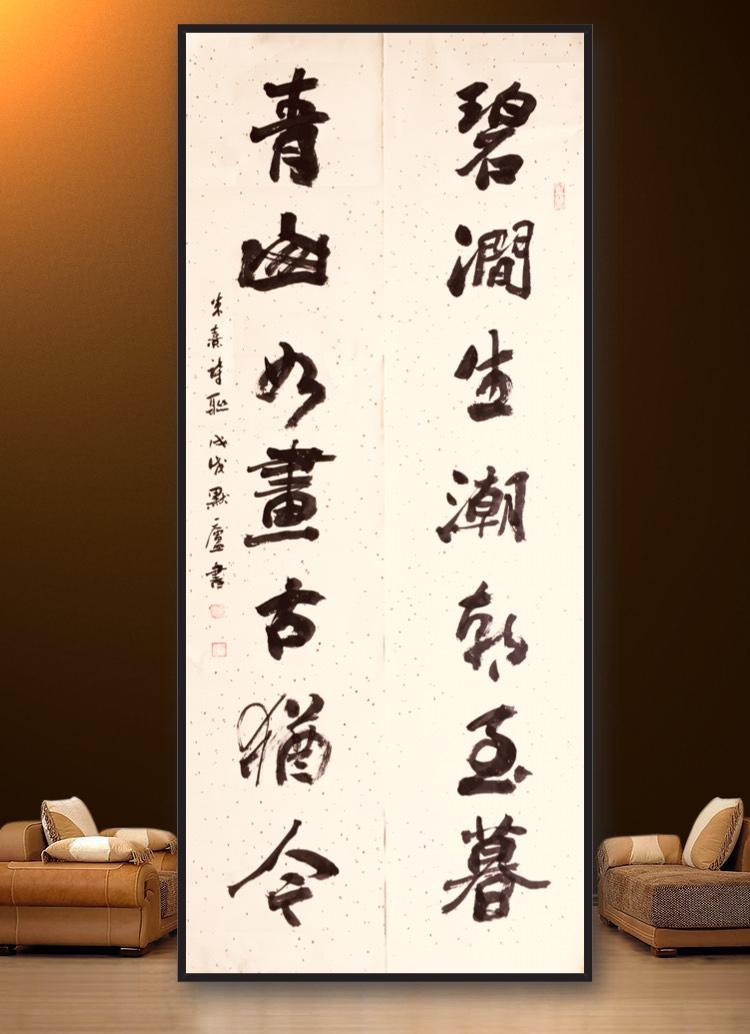 碧澗生潮朝至暮
青山如畫古猶今
朱熹詩聯 戊戌默廬書